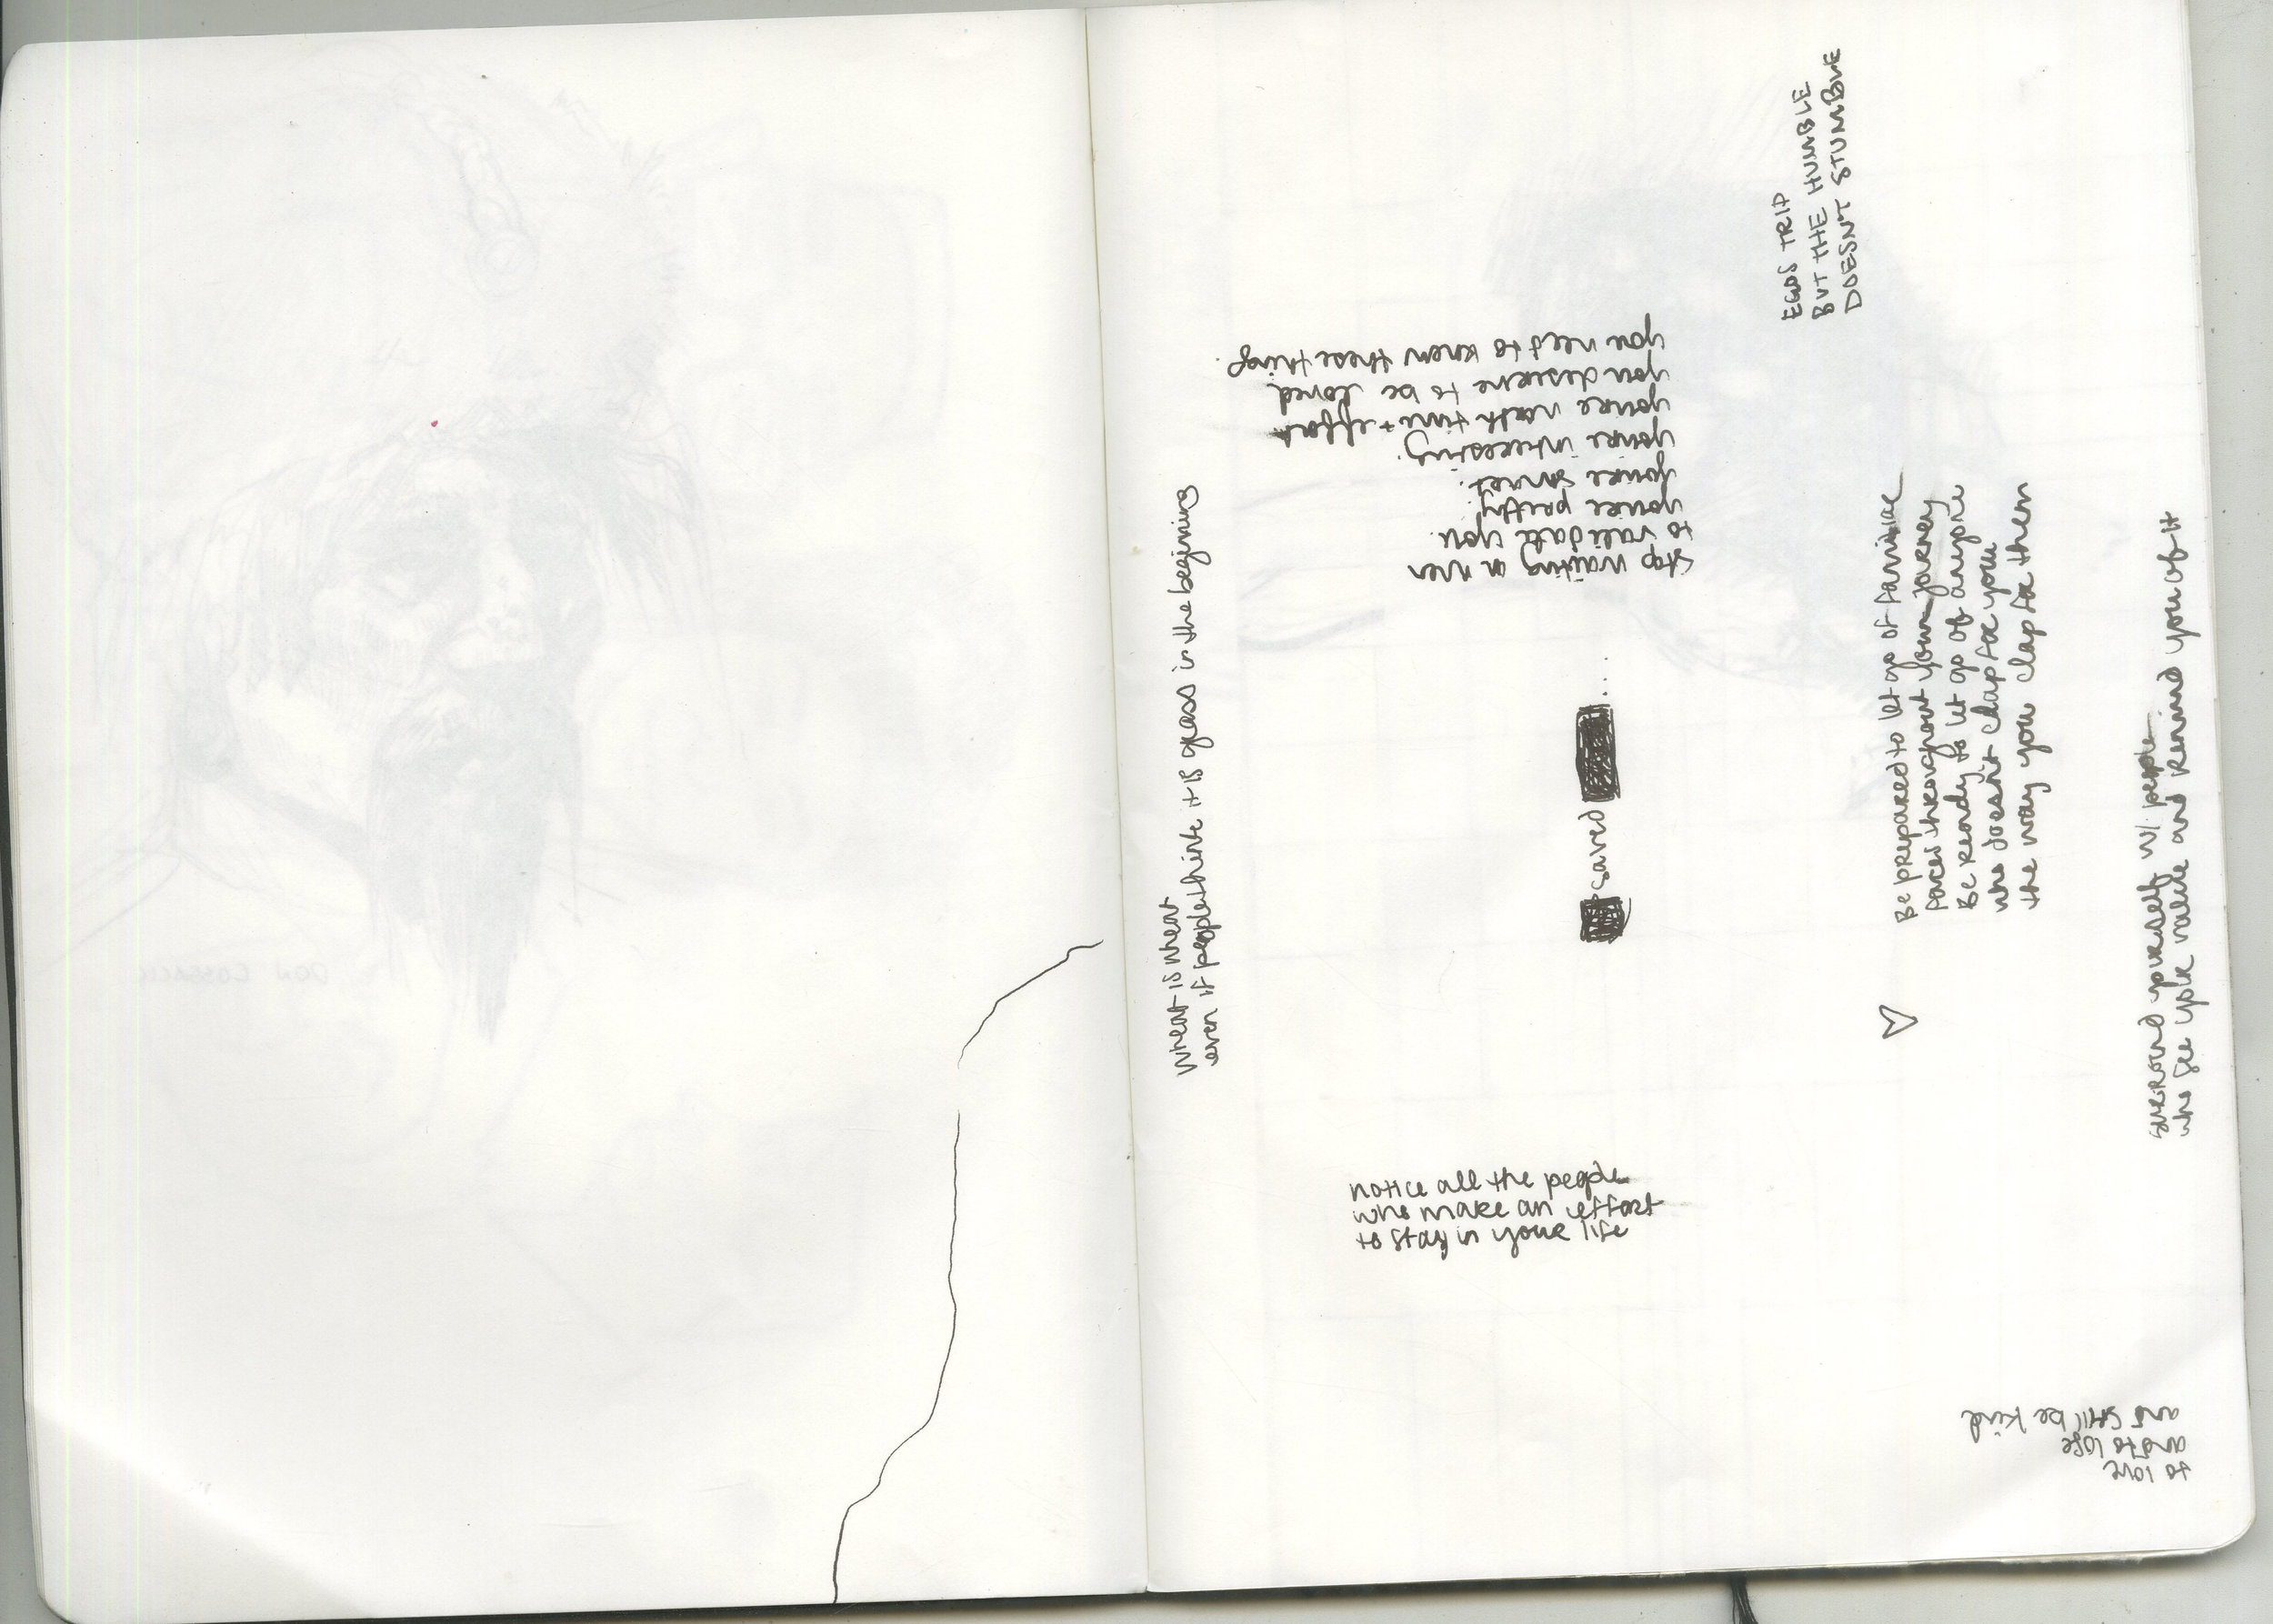 EGOS TRIP
BUT THE HUMBLE
DOESNT STUMBLE
stop waiting on men
to validate you.
you're pretty.
you're smart.
you're interesting.
you're worth time + effort
you deserve to be loved.
you need to know these things.
wheat is wheat
even if people think it is grass in the beginning
saved ...
Be prepared to let go of familiar
faces throughout your journey
Be ready to let go of anyone
who doesn't clap for you
the way you clap for them
surround yourself w/ people
who see your value and remind you of it
notice all the people
who make an effort
to stay in your life
to love
and to lose
and still be kind